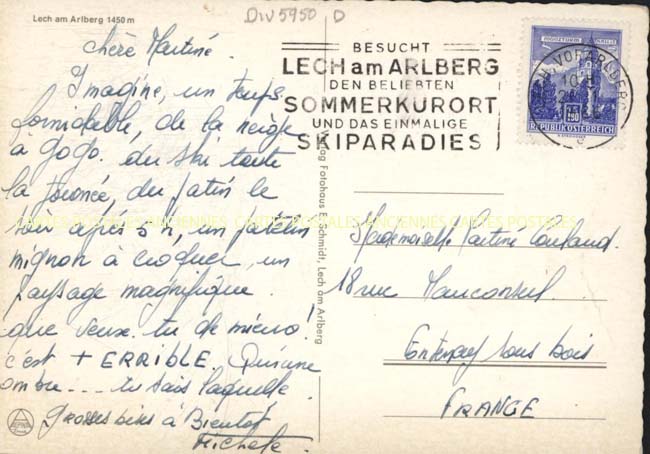 Lech am Arlberg 1450 m
Div 5950 D
Chère Martine.
Imagine, un temps
formidable, de la neige
à gogo. du ski toute
la journée, du patin le
soir après 5 h, un patelin
mignon à croquer, un
paysage magnifique.
que veux-tu de mieux!
c'est + ERRIBLE. Qu'une
ombre... tu sais laquelle.
Grosses bises à Bientôt
Michele.
BESUCHT
LECH am ARLBERG
DEN BELIEBTEN
SOMMERKURORT
UND DAS EINMALIGE
SKIPARADIES
VORARLBERG
REPUBLIK ÖSTERREICH
Fotohaus Schmidt, Lech am Arlberg
Mademoiselle Martine
18 rue Mauconseil
Fontenay sous bois
FRANCE
CARTES POSTALES ANCIENNES CARTES POSTALES ANCIENNES CARTES POSTALES